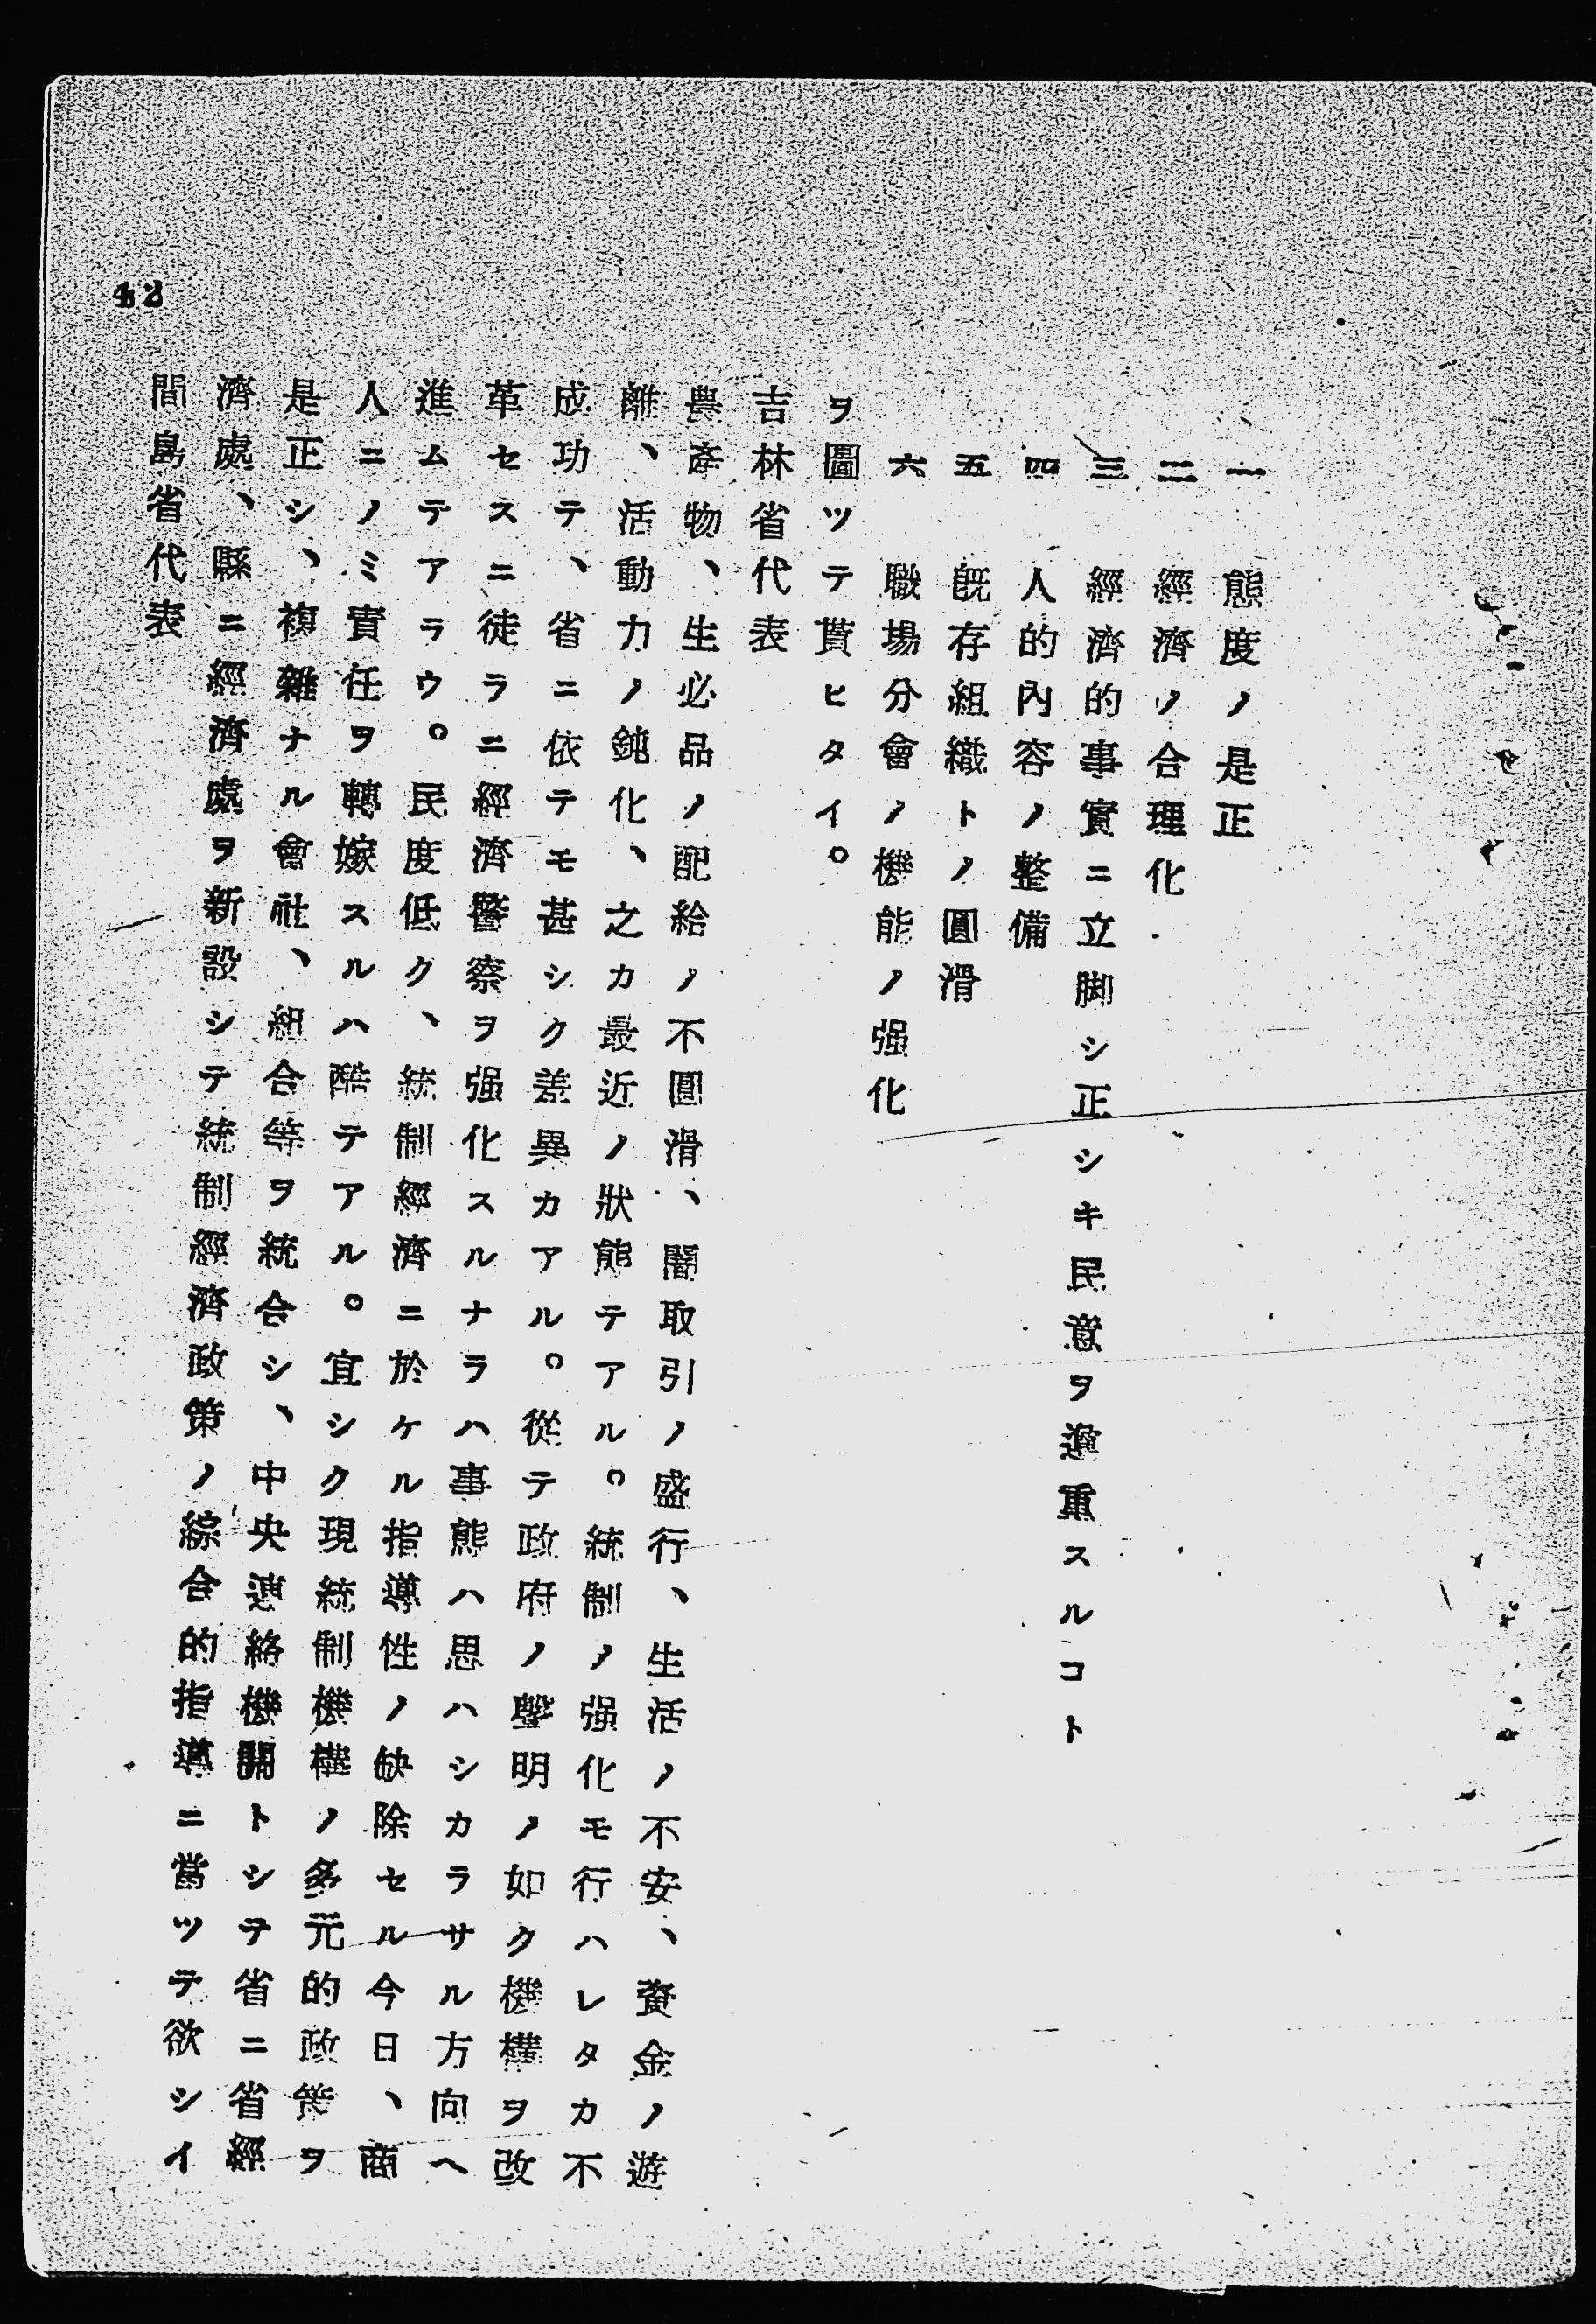 一　態度ノ是正
二　經濟ノ合理化
三　經濟的事實ニ立脚シ正シキ民意ヲ尊重スルコト
四　人的內容ノ整備
五　既存組織トノ圓滑
六　職場分會ノ機能ノ强化
ヲ圖ツテ貰ヒタイ。
吉林省代表
農產物、生必品ノ配給ノ不圓滑、闇取引ノ盛行、生活ノ不安、資金ノ遊
離、活動力ノ鈍化、之カ最近ノ狀態テアル。統制ノ强化モ行ハレタカ不
成功テ、省ニ依テモ甚シク差異カアル。從テ政府ノ聲明ノ如ク機構ヲ改
革セスニ徒ラニ經濟警察ヲ强化スルナラハ事態ハ思ハシカラサル方向ヘ
進ムテアラウ。民度低ク、統制經濟ニ於ケル指導性ノ缺除セル今日、商
人ニノミ責任ヲ轉嫁スルハ酷テアル。宜シク現統制機構ノ多元的政策ヲ
是正シ、複雜ナル會社、組合等ヲ統合シ、中央連絡機關トシテ省ニ省經
濟處、縣ニ經濟處ヲ新設シテ統制經濟政策ノ綜合的指導ニ當ツテ欲シイ
間島省代表